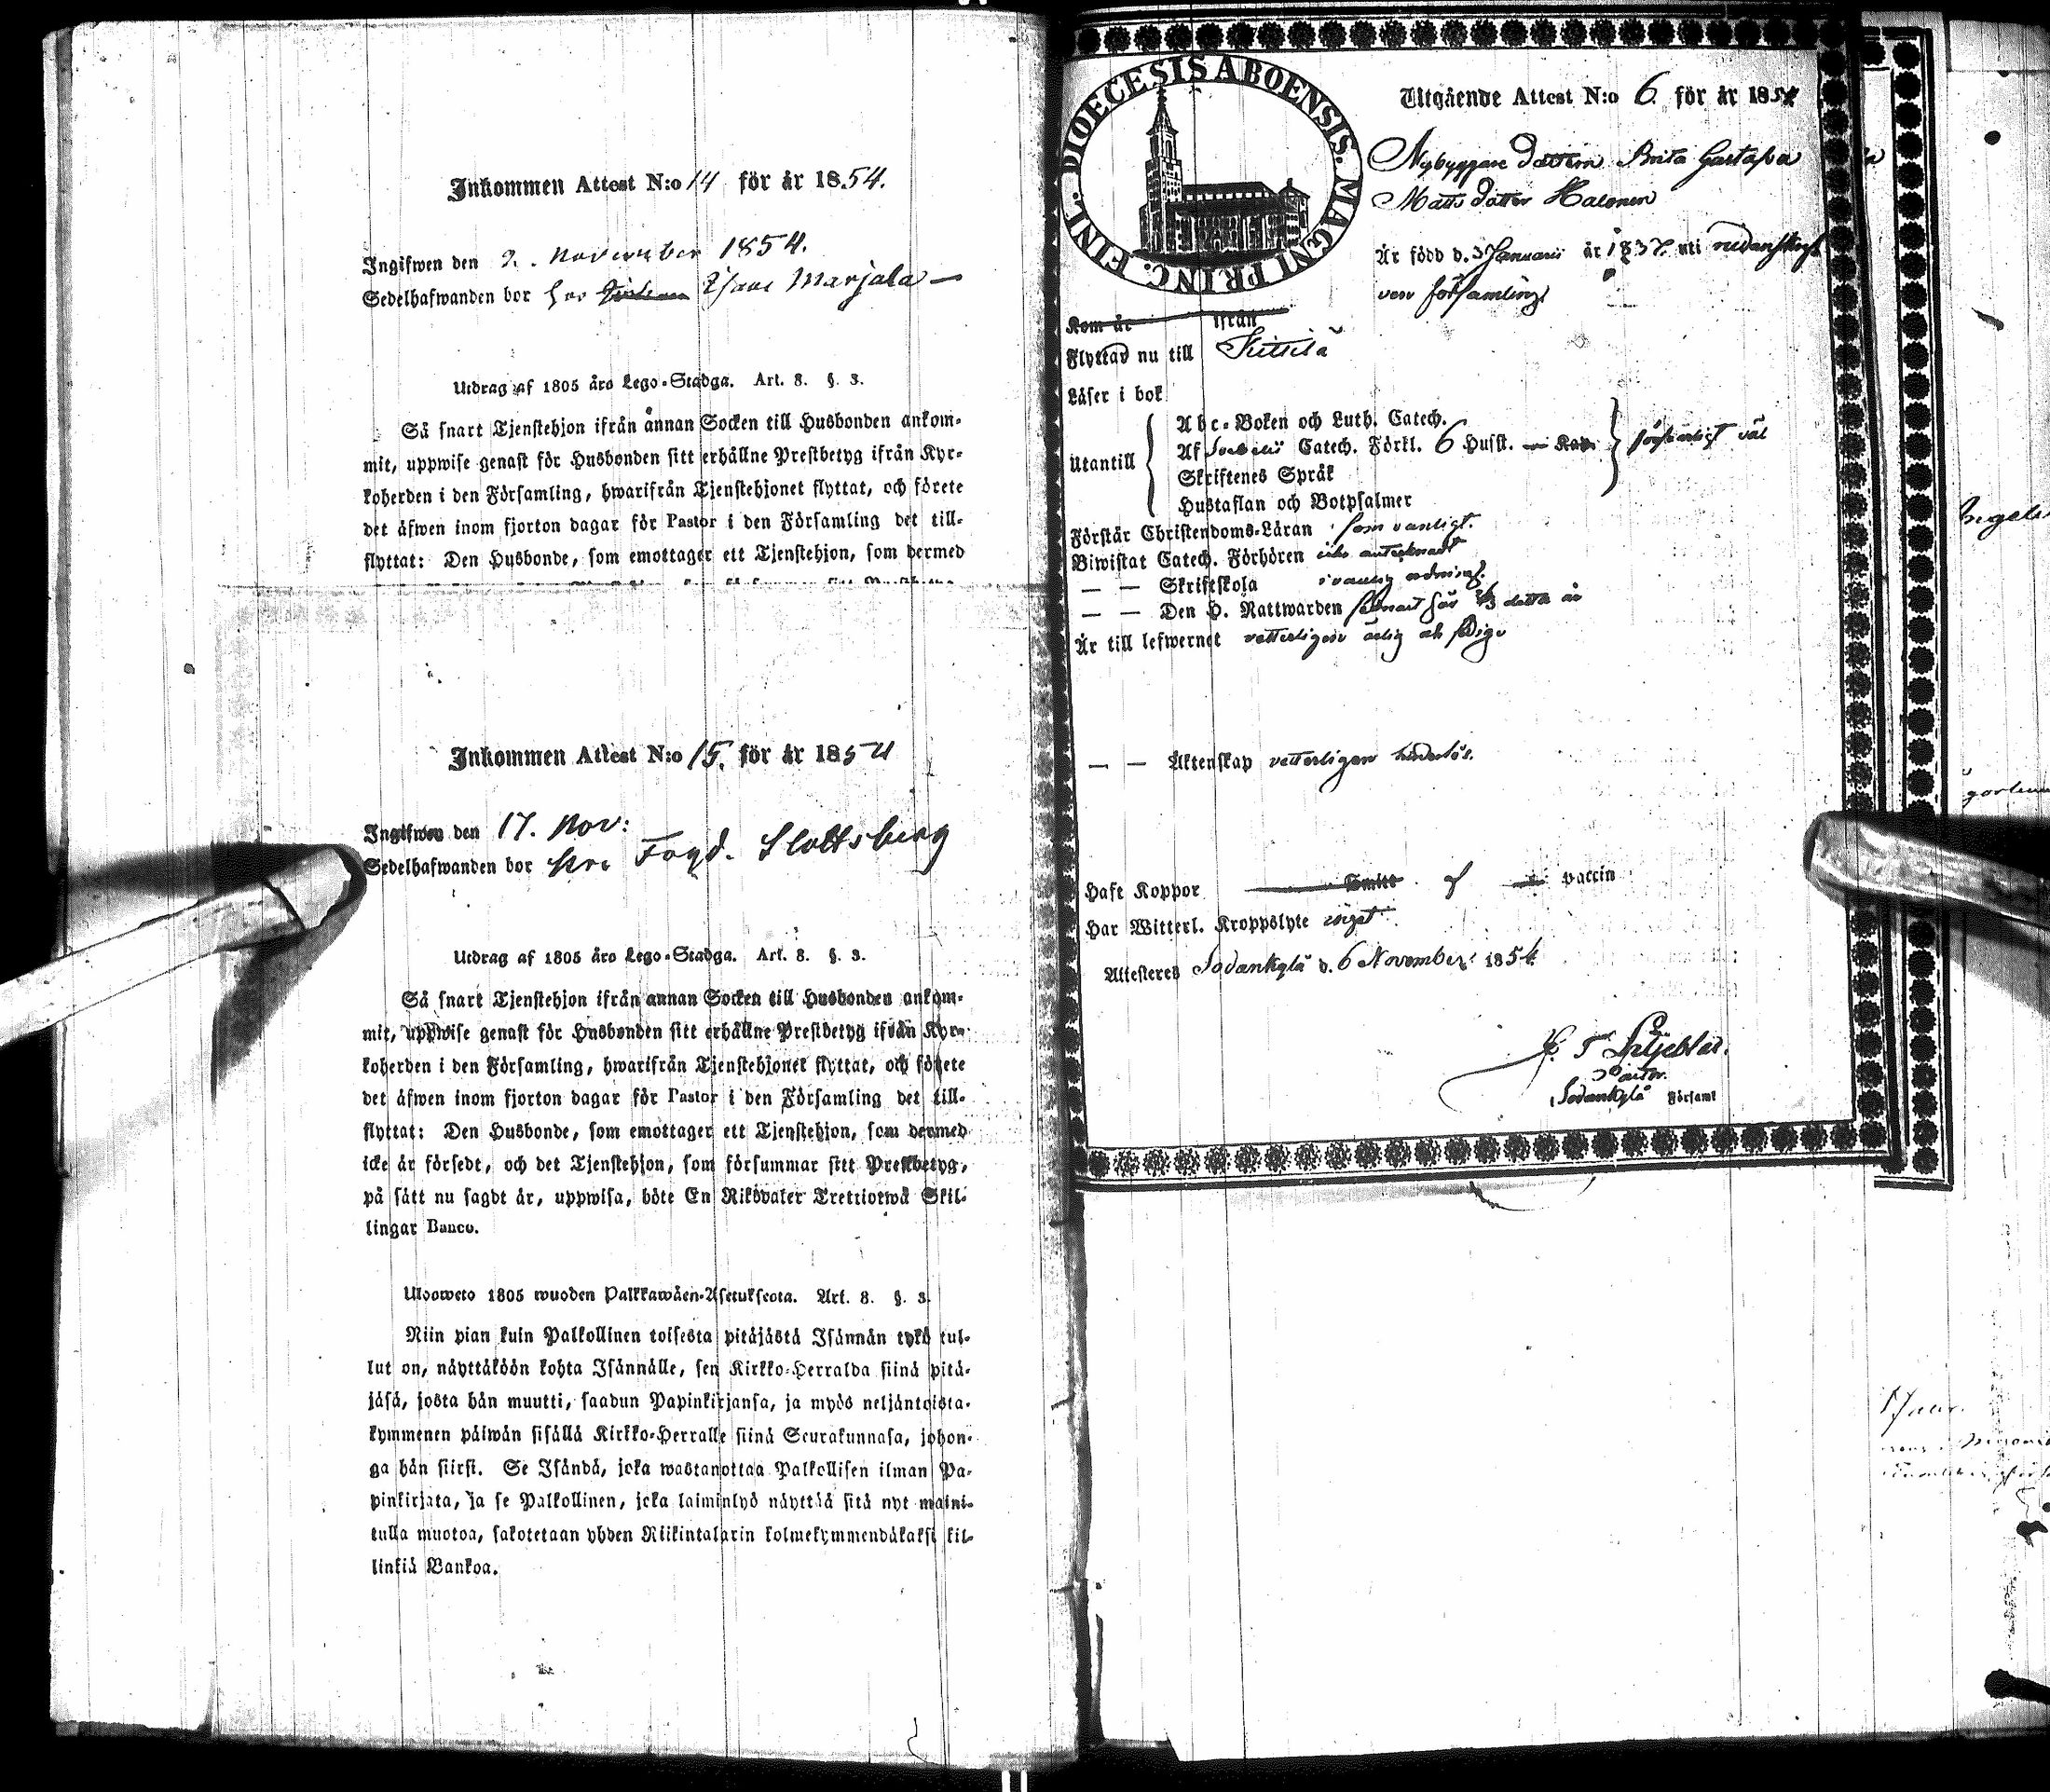 Inkommen Attest N:o 14 för år 1854.
Ingifwen den 9. November 1854.
Sedelhafwanden bor hos Isaac Marjala
Utdrag af 1805 års Lego-Stadga. Art. 8. §. 3.
Så snart Tjenstehjon ifrån annan Socken till Husbonden ankom-
mit, uppwise genast för Husbonden sitt erhållne Prestbetyg ifrån Kyr-
koherden i den Församling, hwarifrån Tjenstehjonet flyttat, och förete
det äfwen inom fjorton dagar för Pastor i den Församling det till-
flyttat: Den Husbonde, som emottager ett Tjenstehjon, som dermed
Inkommen Attest N:o 15. för år 1854
Ingifwen den 17. Nov:
Sedelhafwanden bor Fogd. Slottsberg
Utdrag af 1805 års Lego-Stadga. Art. 8. §. 3.
Så snart Tjenstehjon ifrån annan Socken till Husbonden ankom-
mit, uppwise genast för Husbonden sitt erhållne Prestbetyg ifrån Kyr-
koherden i den Församling, hwarifrån Tjenstehjonet flyttat, och förete
det äfwen inom fjorton dagar för Pastor i den Församling det till-
flyttat: Den Husbonde, som emottager ett Tjenstehjon, som dermed
icke är försedt, och det Tjenstehjon, som försummar sitt Prestbetyg,
på sätt nu sagdt är, uppwisa, böte En Riksdaler Trettiotwå Skil-
lingar Banco.
Ulosweto 1805 wuoden Palkkawäen-Asetuksesta. Art. 8. §. 3.
Niin pian kuin Palkollinen toisesta pitäjästä Isännän tykö tul-
lut on, näyttäköön kohta Isännälle, sen Kirkko-Herralda siinä pitä-
jäsä, josta hän muutti, saadun Papinkirjansa, ja myös neljäntoista-
kymmenen päiwän sisällä Kirkko-Herralle siinä Seurakunnasa, johon-
ga hän siirsi. Se Isändä, joka wastanottaa Palkollisen ilman Pa-
pinkirjata, ja se Palkollinen, joka laiminlyö näyttää sitä nyt maini-
tulla muotoa, sakotetaan yhden Riikintalarin kolmekymmendäkaksi kil-
linkiä Bankoa.
DIOECESIS ABOENSIS. MAGNI PRINC. FINL.
Utgående Attest N:o 6 för år 1854
Nybyggare dottern Brita Gustafva
Matts dotter Halonen
Är född d. 3 Januarii år 1837. uti nedanskrif
ven församling
Kom år ifrån
Flyttar nu till Kittilä
Läser i bok
Utantill
Abc-Boken och Luth. Catech.
Af Svebelii Catech. Förkl. 6 Hufst. Kap. försvarligt väl
Skriftenes Språk
Hustaflan och Botpsalmer
Förstår Christendoms-Läran som vanligt.
Biwistat Catech. Förhören icke antecknadt
— — Skriftskola i vanlig ordning.
— — Den H. Nattwarden senast här detta år
Är till lefwernet vetterligen ärlig och sedig
— — Äktenskap vetterligen hinderlös.
Haft Koppor Smitt af vaccin
Har Witterl. Kroppslyte inget
Attesteres Sodankylä d. 6 November 1854.
Pastor.
Sodankylä Församl